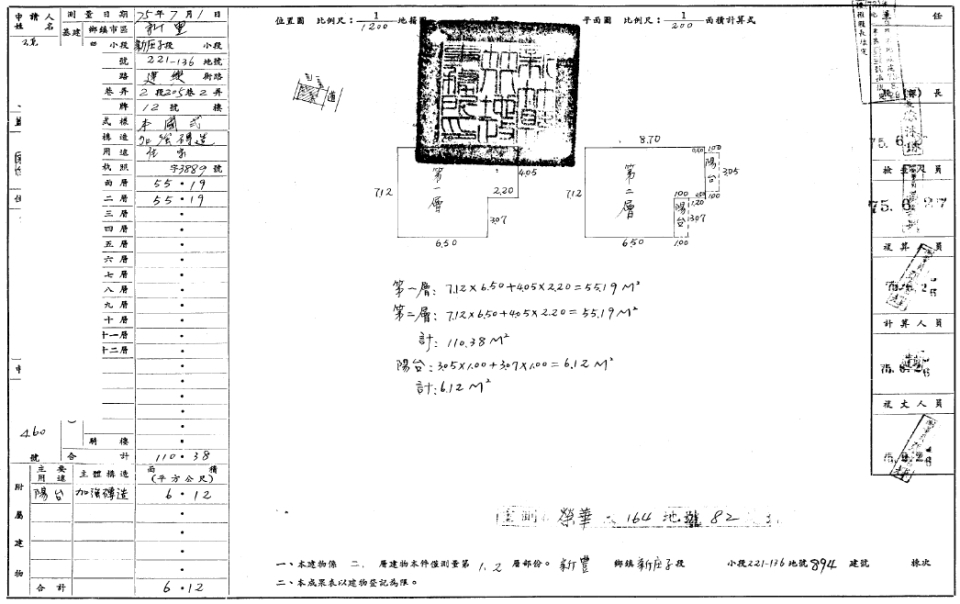 申請人姓名 測量日期 75年7月1日
基建 鄉鎮市區 新豐
小段 新庄子段 小段
號 221-136 地號
路 建興 街路
巷弄 2段205巷2弄
牌 12號 樓
式樣 本國式
構造 加強磚造
用途 住家
執照 字3889號
面層 55.19
二層 55.19
三層
四層
五層
六層
七層
八層
九層
十層
十一層
十二層
460
騎樓
號 合計 110.38
附屬建物
主要用途 主體構造 面積(平方公尺)
陽台 加強磚造 6.12
合計 6.12
位置圖 比例尺:1/1200 地籍圖 號
道
平面圖 比例尺:1/200 面積計算式
第一層
7.12
4.05
2.20
3.07
6.50
8.70
第二層
7.12
6.50
陽台
1.00
3.05
1.00
陽台
1.00
1.20
3.07
1.00
第一層:7.12×6.50+4.05×2.20=55.19 M²
第二層:7.12×6.50+4.05×2.20=55.19 M²
計:110.38 M²
陽台:3.05×1.00+3.07×1.00=6.12 M²
計:6.12 M²
榮華 164 地號 82
一、本建物係 二. 層建物本件僅測量第 1.2 層部份。 新豐 鄉鎮 新庄子段 小段221-136地號894 建號 棟次
二、本成果表以建物登記為限。
主任
課(股)長
75.6
檢查人員
75.6.27
複算人員
計算人員
複丈人員